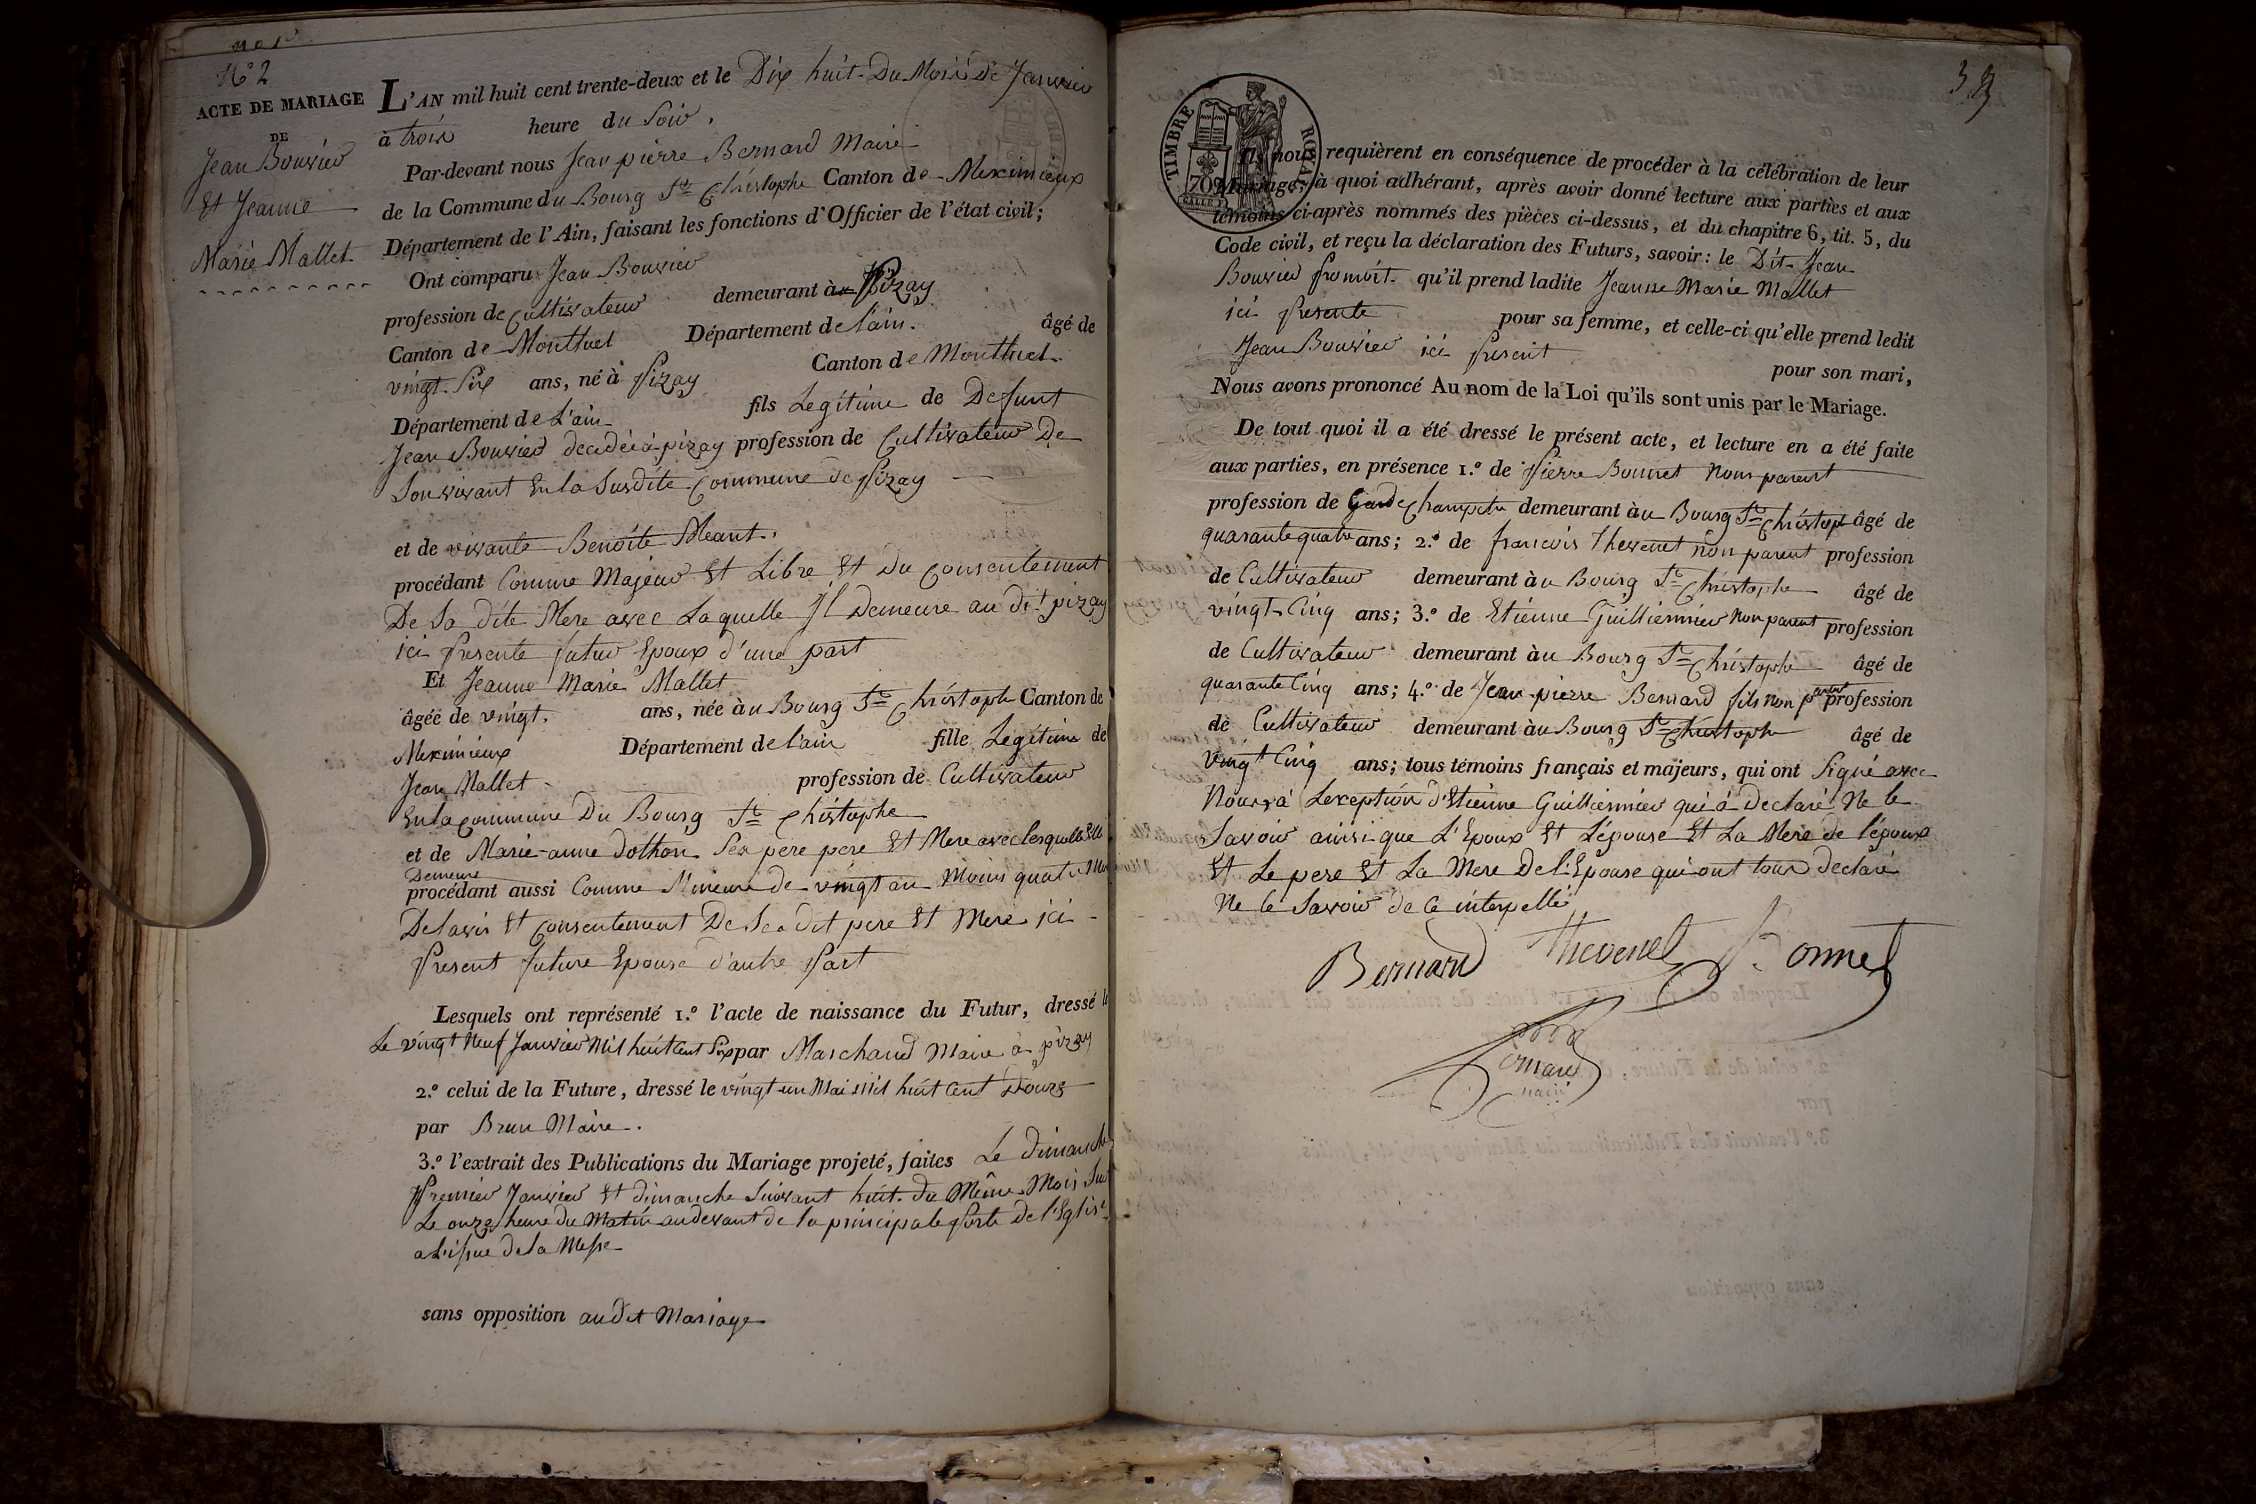 N° 2
ACTE DE MARIAGE
DE
Jean Bouvier
Et Jeanne
Marie Mallet
L'AN mil huit cent trente-deux et le Dix huit Du Mois De Janvier
à trois heure du Soir.
Par-devant nous Jean pierre Bernard Maire
de la Commune du Bourg St Christophe Canton de Meximieux
Département de l'Ain, faisant les fonctions d'Officier de l'état civil;
Ont comparu Jean Bouvier
profession de Cultivateur demeurant à Pizay
Canton de Montluel Département de l'ain. âgé de
vingt Six ans, né à Pizay Canton de Montluel
Département de L'ain fils Legitime de Defunt
Jean Bouvier decédé à pizay profession de Cultivateur De
Son vivant En la Susdite Commune de Pizay
et de vivante Benoite Meant.
procédant Comme Majeur Et Libre Et Du Consentement
De Sa dite Mere avec Laquelle Il Demeure au dit pizay
ici Presente futur Epoux d'une part
Et Jeanne Marie Mallet
âgée de vingt. ans, née à u Bourg St Christoph Canton de
Meximieux Département de l'ain fille Legitime de
Jean Mallet profession de Cultivateur
En la commune Du Bourg St Christophe
et de Marie-anne dothon Ses pere pere Et Mere avec lesquelle Elle
Demeure
procédant aussi Comme Mineure de vingt an Moins quatre Mois
De l'avis Et Consentement De Ses dit pere Et Mere ici
Present future Epouse d'autre Part
Lesquels ont représenté 1.º l'acte de naissance du Futur, dressé le
Le vingt Neuf Janvier Mil huit Cent Six par Marchand Maire à pizay
2.º celui de la Future, dressé le vingt un Mai Mil huit Cent Douze
par Brun Maire.
3.º l'extrait des Publications du Mariage projeté, faites Le dimanche
Premier Janvier Et dimanche Suivant huit du Même Mois Sur
Le onze heure du Matin au devant de la principale Porte de l'Eglise
a L'issue de la Messe
sans opposition au dit Mariage
39
TIMBRE ROYAL
70
Ils nous requièrent en conséquence de procéder à la célébration de leur
Mariage; à quoi adhérant, après avoir donné lecture aux parties et aux
témoins ci-après nommés des pièces ci-dessus, et du chapitre 6, tit. 5, du
Code civil, et reçu la déclaration des Futurs, savoir: le Dit Jean
Bouvier Promit qu'il prend ladite Jeanne Marie Mallet
ici Presente pour sa femme, et celle-ci qu'elle prend ledit
Jean Bouvier ici Present pour son mari,
Nous avons prononcé Au nom de la Loi qu'ils sont unis par le Mariage.
De tout quoi il a été dressé le présent acte, et lecture en a été faite
aux parties, en présence 1.º de Pierre Bonnet Nom parent
profession de Garde Champetre demeurant à u Bourg St Christoph âgé de
quarante quatre ans; 2.º de francois Thevenet non parent profession
de Cultivateur demeurant à u Bourg St Christophe âgé de
vingt Cinq ans; 3.º de Etienne Guillermier Non parent profession
de Cultivateur demeurant à u Bourg St Christophe âgé de
quarante Cinq ans; 4.º de Jean-pierre Bernard fils non parent profession
de Cultivateur demeurant à u Bourg St Christoph âgé de
Vingt Cinq ans; tous témoins français et majeurs, qui ont Signé avec
Nous à Lexeption d'Etienne Guillermier qui à declaré Ne le
Savoir ainsi que L'Epoux Et Lépouse Et La Mere de l'époux
Et Le pere Et La Mere De l'Epouse qui ont tous declaré
Ne le Savoir de ce interpellé
Bernard Thevenet Bonnet
Bernard
maire